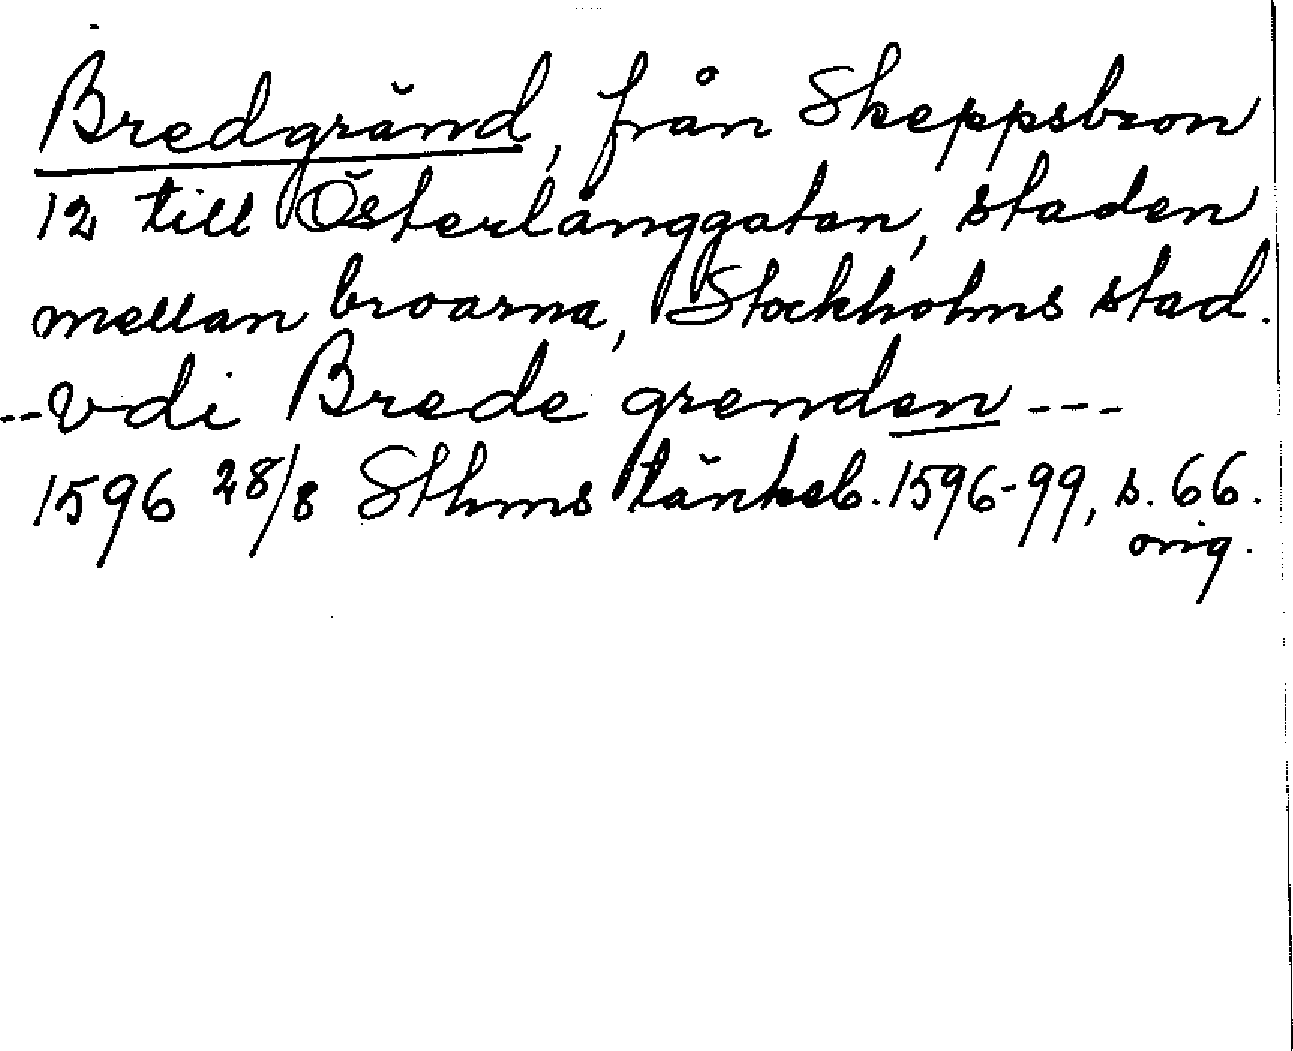 Bredgränd, från Skeppsbron
12 till Österlånggatan, staden
mellan broarna, Stockholms stad.
--vdi Brede grenden ---
1596 28/8 Sthms tänkeb. 1596-99, s. 66.
orig.